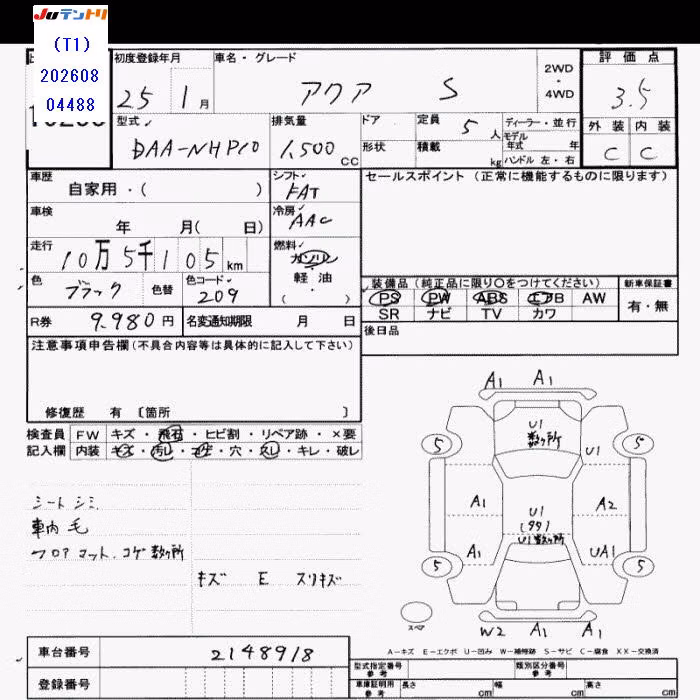 Juテントリ
(T1)
202608
04488
初度登録年月 車名・グレード 評価点
25 1月 アクア S 2WD・4WD 3.5
型式 排気量 ドア 定員 5人 ディーラー・並行 外装 内装
DAA-NHP10 1,500cc 形状 積載 kg モデル年式 年 ハンドル 左・右 C C
車歴 シフト セールスポイント (正常に機能するものに限ります)
自家用・( ) FAT
車検 冷房
年 月( 日) AAC
走行 燃料
10万5千105km ガソリン
色 色替 色コード 軽・油 装備品 (純正品に限り○をつけてください) 新車保証書
ブラック 209 ( ) PS PW ABS エアB AW 有・無
SR ナビ TV カワ
R券 9,980円 名変通知期限 月 日 後日品
注意事項申告欄 (不具合内容等は具体的に記入して下さい)
修復歴 有 〔箇所 〕
検査員 FW キズ・飛石・ヒビ割・リペア跡・×要
記入欄 内装 キズ・汚レ・コゲ・穴・スレ・キレ・破レ
シート シミ
車内 毛
フロアマット、コゲ数ヶ所
キズ E スリキズ
A1 A1
U1
数ヶ所
5 5
U1
A1 A2
U1
(99)
U1数ヶ所
A1 UA1
5 5
スペア
W2 A1 A1
A-キズ E-エクボ U-凹み W-補修跡 S-サビ C-腐食 XX-交換済
車台番号 2148918
登録番号
型式指定番号 参考 類別区分番号 参考
車庫証明用 参考 長さ cm 幅 cm 高さ cm